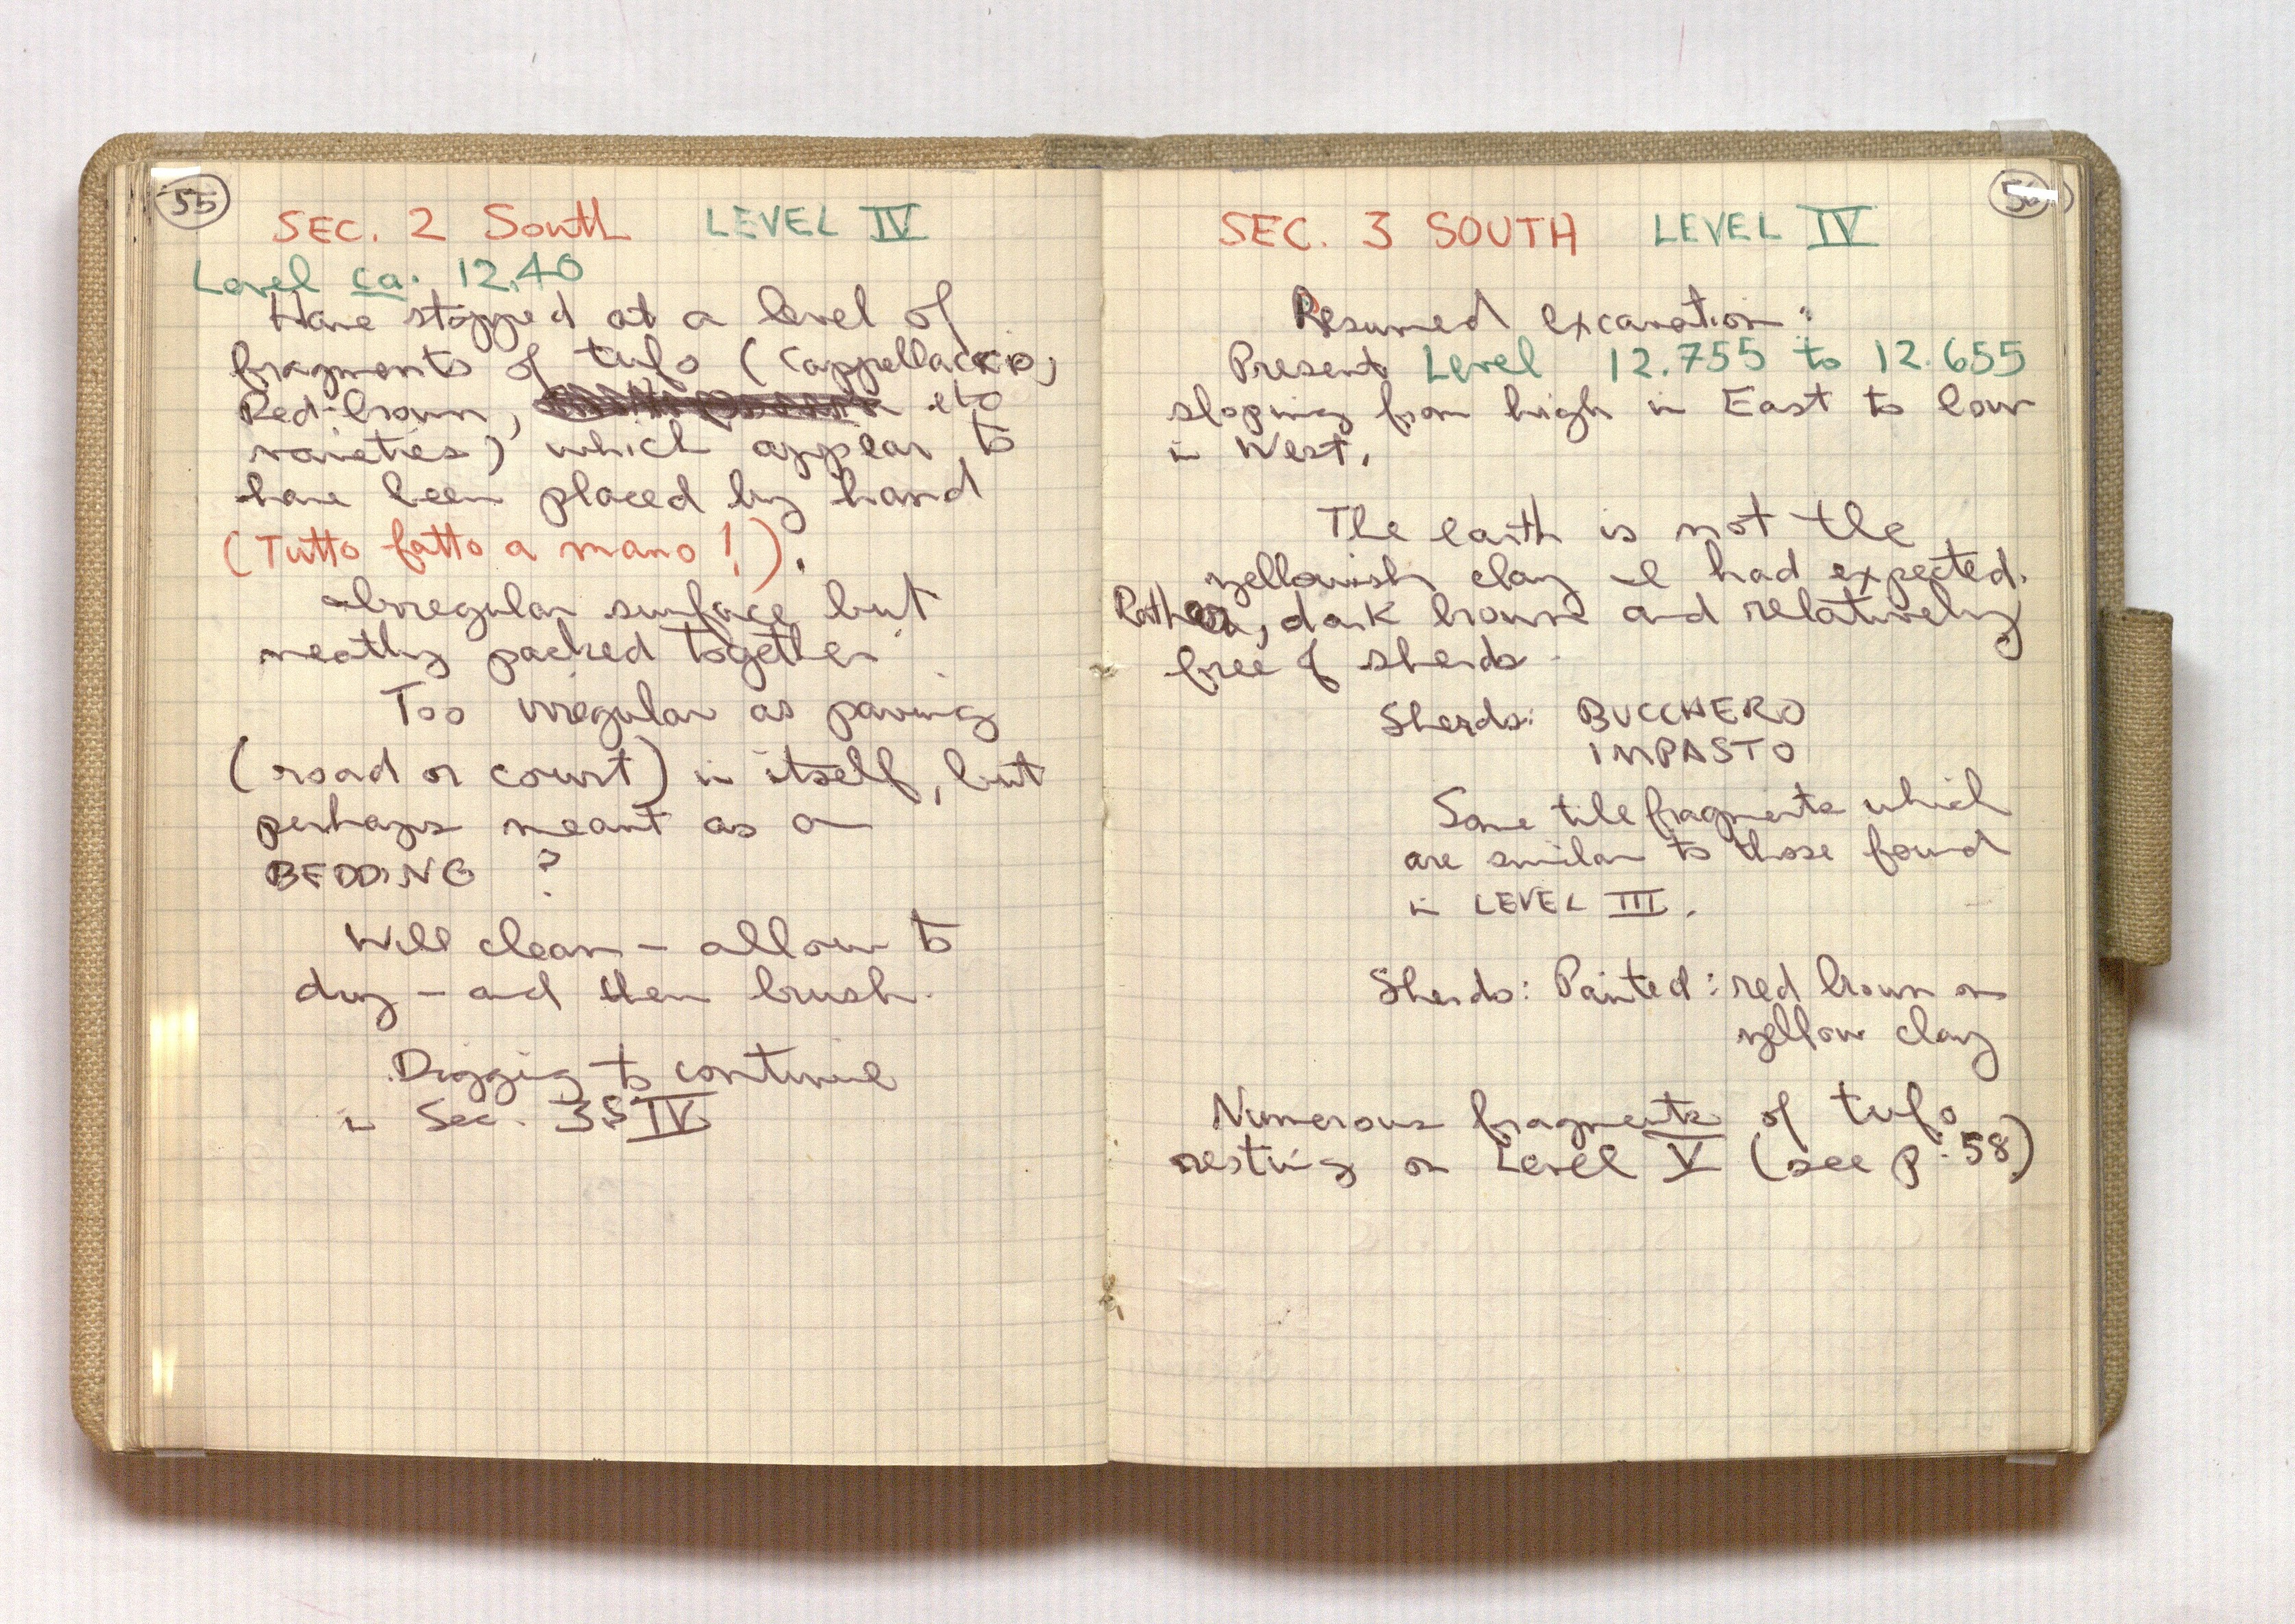 55
SEC. 2 South LEVEL IV
Level ca. 12.40
Have stopped at a level of
fragments of tufo (Cappellaccio,
Red-brown, etc
varieties) which appear to
have been placed by hand
(Tutto fatto a mano!).
Irregular surface but
neatly packed together.
Too irregular as paving
(road or court) in itself, but
perhaps meant as a
BEDDING ?
Will clean – allow to
dry – and then brush.
Digging to continue
in Sec. 3S IV
56
SEC. 3 SOUTH LEVEL IV
Resumed excavation:
Present Level 12.755 to 12.655
sloping from high in East to low
in West.
The earth is not the
yellowish clay I had expected.
Rather, dark brown and relatively
free of sherds.
Sherds: BUCCHERO
IMPASTO
Some tile fragments which
are similar to those found
in LEVEL III.
Sherds: Painted: red brown on
yellow clay
Numerous fragments of tufo
resting on Level V (see p. 58)